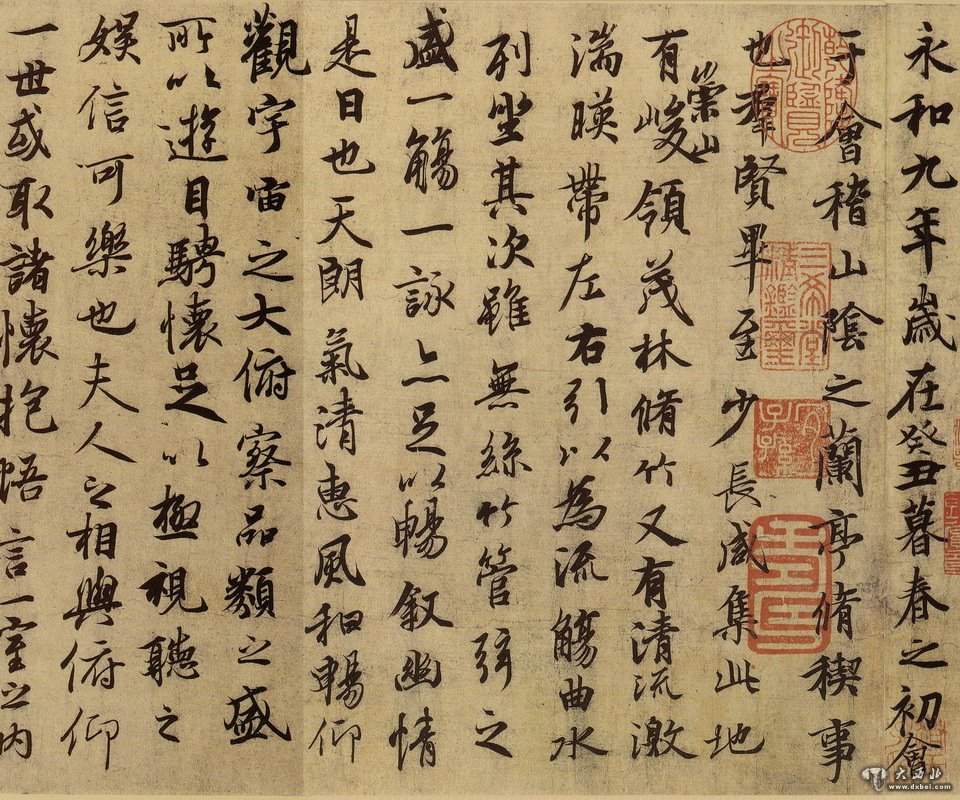 永和九年歲在癸丑暮春之初會
于會稽山陰之蘭亭脩稧事
也羣賢畢至少長咸集此地
有崇山峻領茂林脩竹又有清流激
湍暎帶左右引以為流觴曲水
列坐其次雖無絲竹管弦之
盛一觴一詠亦足以暢敘幽情
是日也天朗氣清惠風和暢仰
觀宇宙之大俯察品類之盛
所以遊目騁懷足以極視聽之
娛信可樂也夫人之相與俯仰
一世或取諸懷抱悟言一室之內
三希堂精鑑璽
宜子孫
大西北
www.dxbei.com